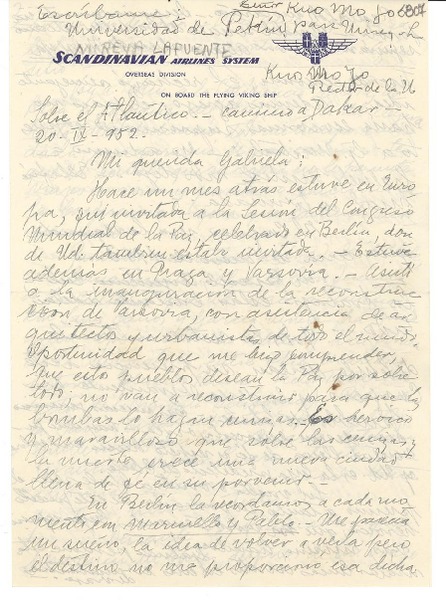 Escríbame:
Señor Kuo Mo Jo 6807
Universidad de Pekín para
MIREYA LAFUENTE
SCANDINAVIAN AIRLINES SYSTEM
OVERSEAS DIVISION
Kuo Mo Jo
Rector de la U
ON BOARD THE FLYING VIKING SHIP
Sobre el Atlántico. - camino a Dakar -
20-IX-952.
Mi querida Gabriela:
Hace un mes atrás estuve en Euro
pa, fui invitada a la Sesión del Congreso
Mundial de la Paz, celebrado en Berlín, don
de Ud. tambien estaba invitada. - Estuve
además en Praga y Varsovia. - Asistí
a la inauguración de la reconstruc
ción de Varsovia, con asistencia de ar
quitectos y urbanistas de todo el mundo.
Oportunidad que me hizo comprender
que estos pueblos desean la Paz por sobre
todo; no van a reconstruir para que las
bombas lo hagan ruinas. Es heroico
y maravilloso que sobre las cenizas y
la muerte crece una nueva ciudad
llena de fe en su porvenir. -
En Berlín la recordamos a cada mo
mento con Marinello y Pablo. - Me parecía
un sueño, la idea de volver a verla pero
el destino no me proporcionó esa dicha.